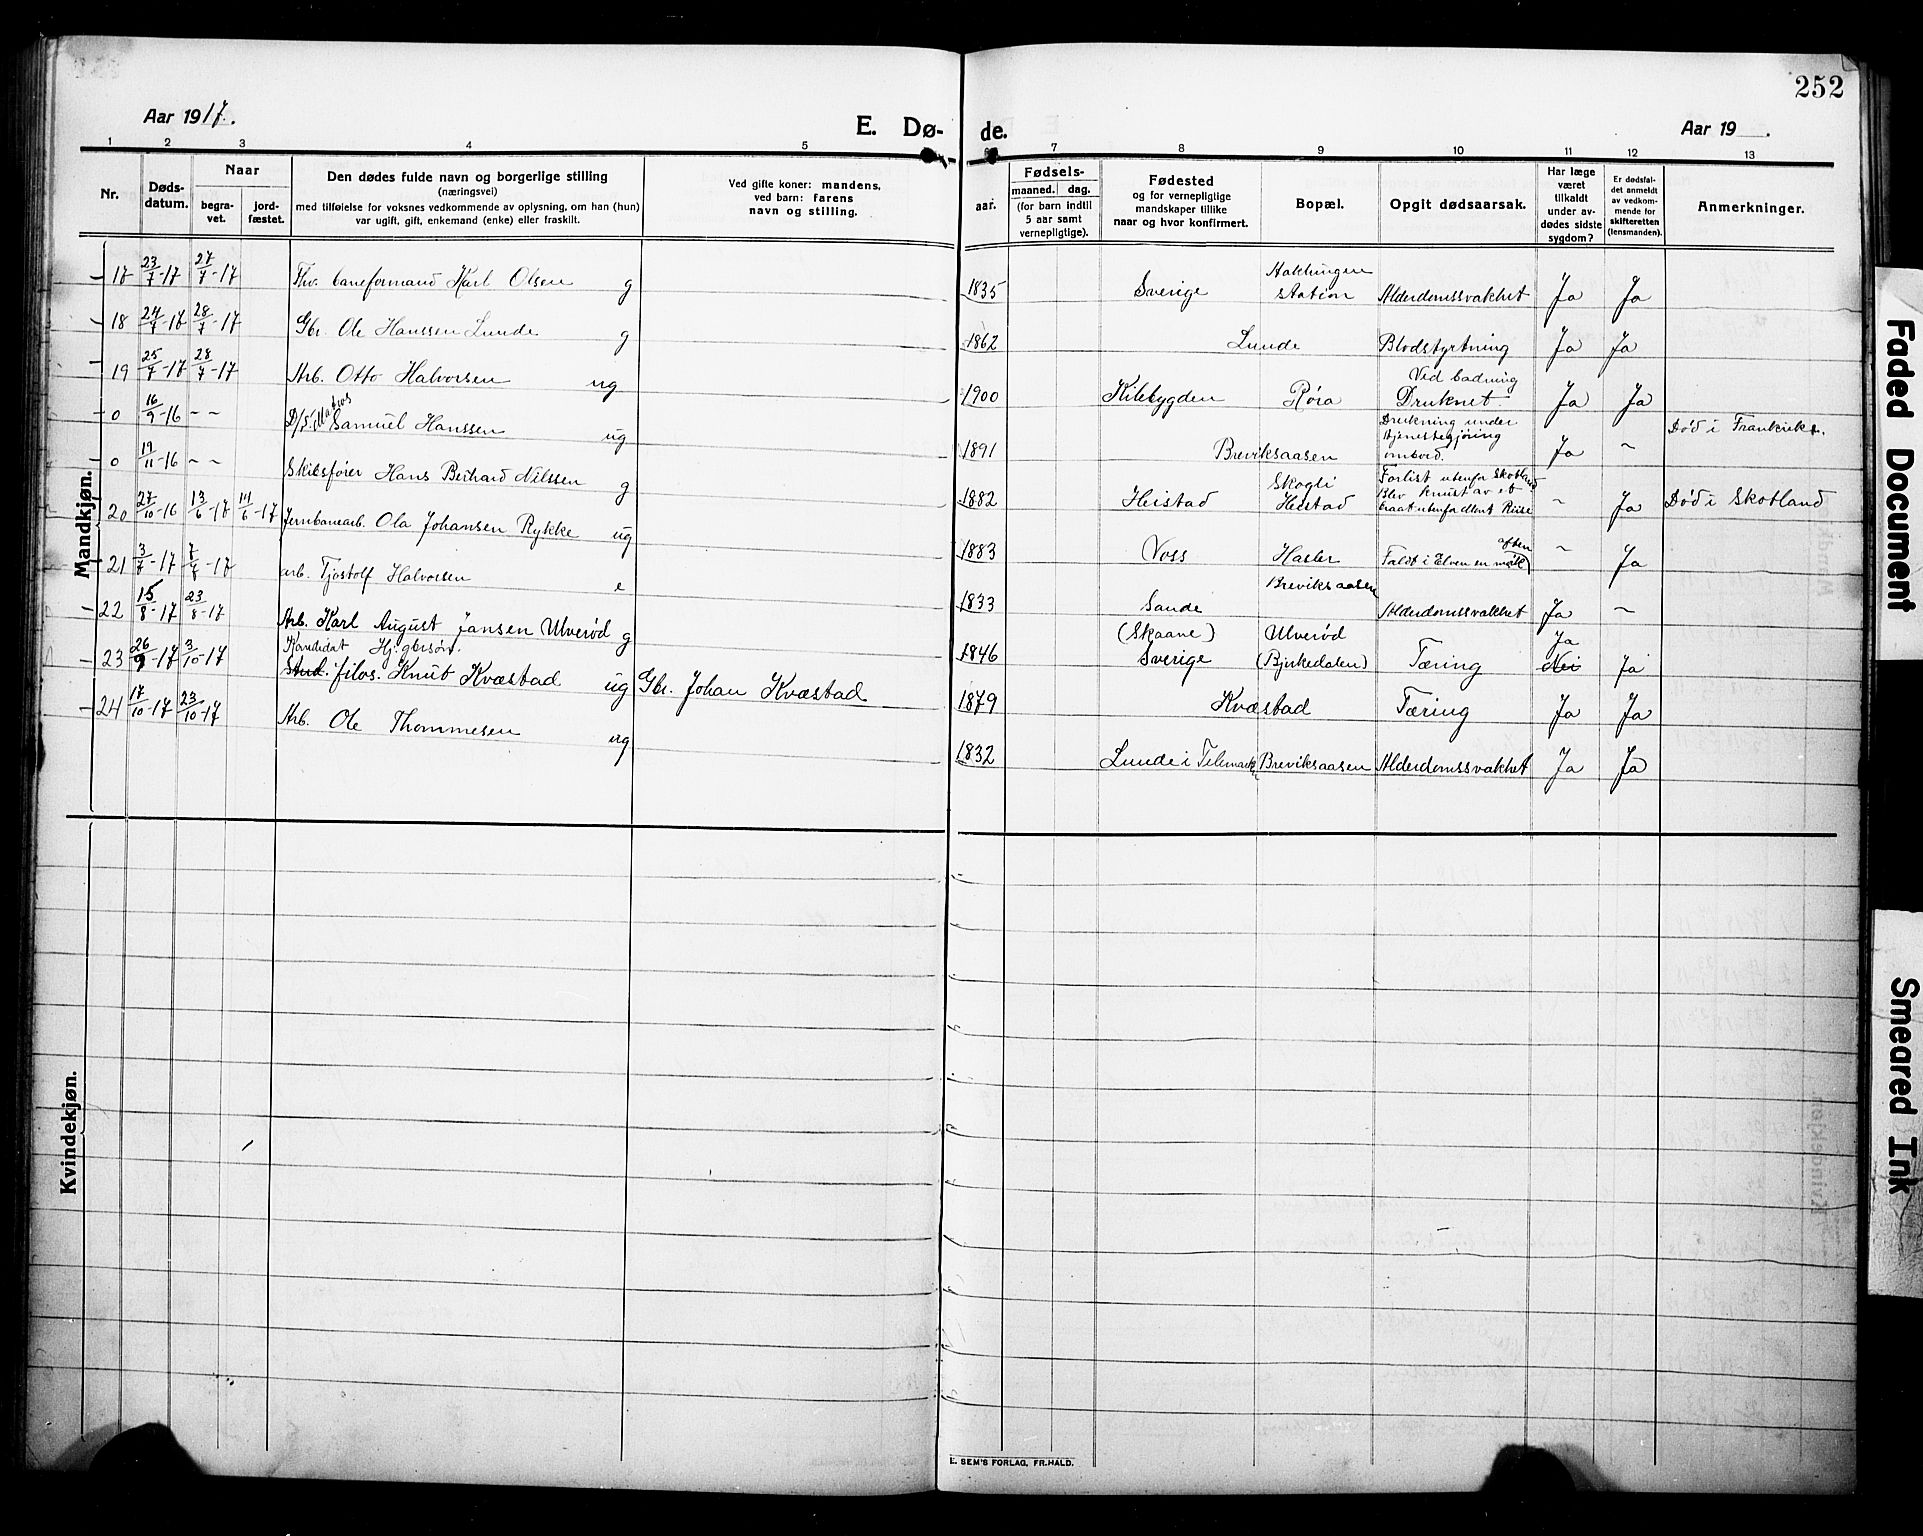 252
Aar 1917.
E. Dø-
de.
Aar 19 .
1 2 3 4 5 7 8 9 10 11 12 13
Nr.
Døds-
datum.
Naar
begra-
vet.
jord-
fæstet.
Den dødes fulde navn og borgerlige stilling
(næringsvei)
med tilføielse for voksnes vedkommende av oplysning, om han (hun)
var ugift, gift, enkemand (enke) eller fraskilt.
Ved gifte koner: mandens,
ved barn: farens
navn og stilling.
aar.
Fødsels-
maaned. dag.
(for barn indtil
5 aar samt
vernepligtige).
Fødested
og for vernepligtige
mandskaper tillike
naar og hvor konfirmert.
Bopæl.
Opgit dødsaarsak.
Har læge
været
tilkaldt
under av-
dødes sidste
sygdom?
Er dødsfal-
det anmeldt
av vedkom-
mende for
skifteretten
(lensmanden).
Anmerkninger.
Mandkjøn.
17 23/7-17 27/7-17 Fhv. baneformand Karl Olsen g 1835 Sverige station Alderdomssvakhet Ja Ja
18 24/7-17 28/7-17 Gbr. Ole Hanssen Lunde g 1862 Lunde Blodstyrtning Ja Ja
19 25/7-17 28/7-17 Arb. Otto Halvorsen ug 1900 Kilebygden Røra Ved badning
Druknet Ja Ja
0 16/9-16 – – D/S. Matros Samuel Hanssen ug 1891 Breviksaasen Drukning under
tjenestegjøring
ombord. Ja – Død i Frankrike.
0 19/11-16 – – Skibsfører Hans Berhard Nilssen g 1882 Heistad Skogli
Heistad Forlist utenfor Skotland
Blev knust av et – Ja Død i Skotland
20 27/10-16 13/6-17 14/6-17 Jernbanearb. Ola Johansen Rykke ug 1883 Voss Faldt i Elven en mørk aften – Ja
21 3/7-17 arb. Tjostolf Halvorsen e 1833 Sande Breviksaasen Alderdomssvakhet Ja –
22 15/8-17 23/8-17 Arb. Karl August Jansen Ulverød g 1846 (Skaane)
Sverige Ulverød
(Bjerkedalen) Tæring Ja
Nei Ja
23 26/9-17 3/10-17 Kandidat
Stud. filos. Knut Kvæstad ug Gbr. Johan Kvæstad 1879 Kvæstad Tæring Ja Ja
24 17/10-17 23/10-17 Arb. Ole Thommesen ug 1832 Lunde i Telemark Breviksaasen Alderdomssvakhet Ja Ja
Kvindekjøn.
E. SEM'S FORLAG, FR.HALD.
Faded Document
Smeared Ink